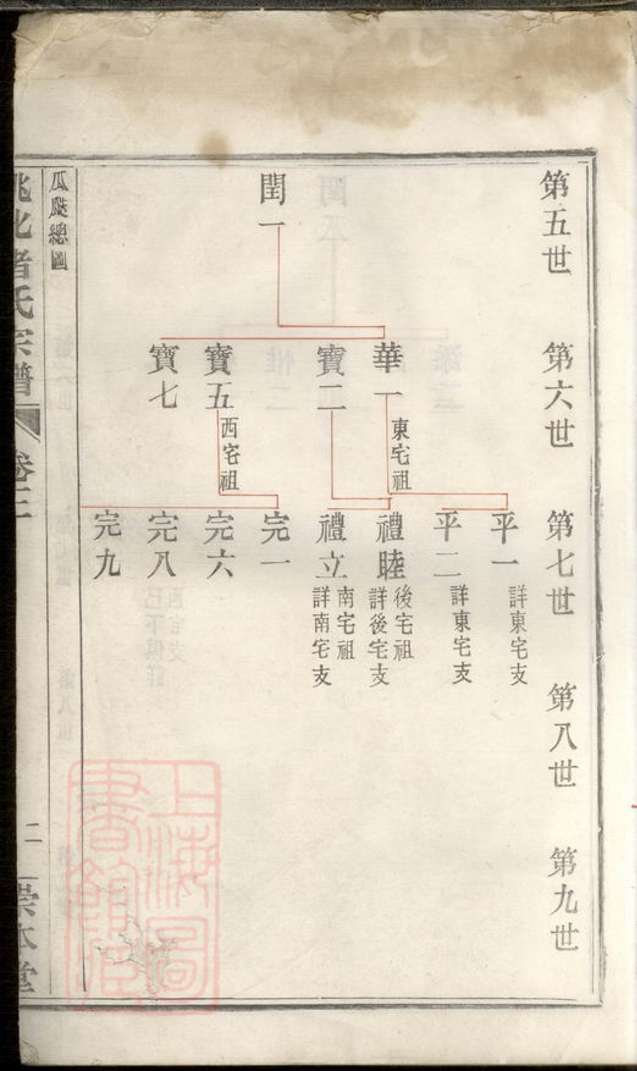 第五世
第六世
第七世
第八世
第九世
閏一
華一
東宅祖
寶二
寶五
西宅祖
寶七
平一
詳東宅支
平二
詳東宅支
禮睦
後宅祖
詳後宅支
禮立
南宅祖
詳南宅支
完一
完六
完八
完九
瓜瓞總圖
氏宗譜
卷二
二
崇本堂
上海圖書館藏